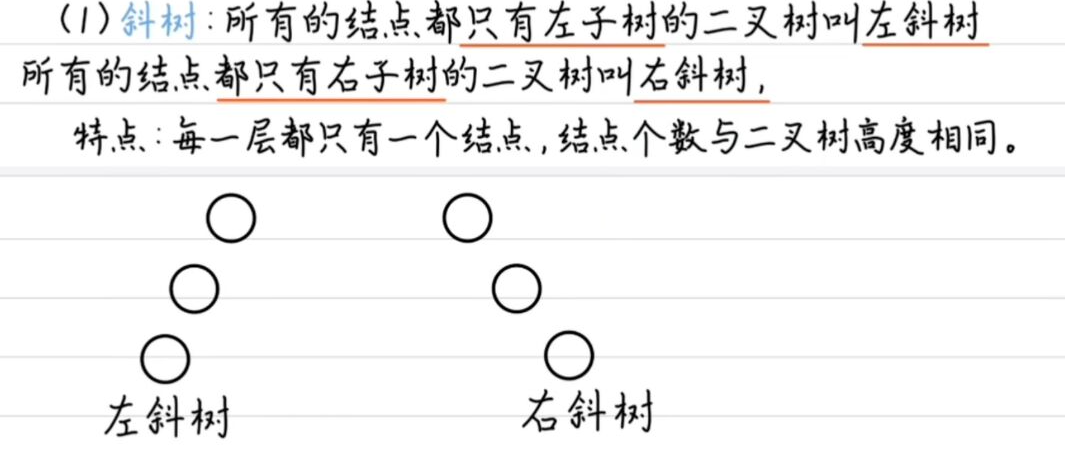 (1)斜树:所有的结点都只有左子树的二叉树叫左斜树
所有的结点都只有右子树的二叉树叫右斜树,
特点:每一层都只有一个结点,结点个数与二叉树高度相同。
左斜树
右斜树